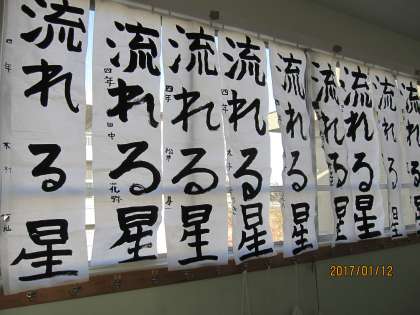 流れる星
四年
流れる星
四年
田中
流れる星
四年
流れる星
四年
流れる星
流れる星
流れる星
流れる
流れ
2017/01/12